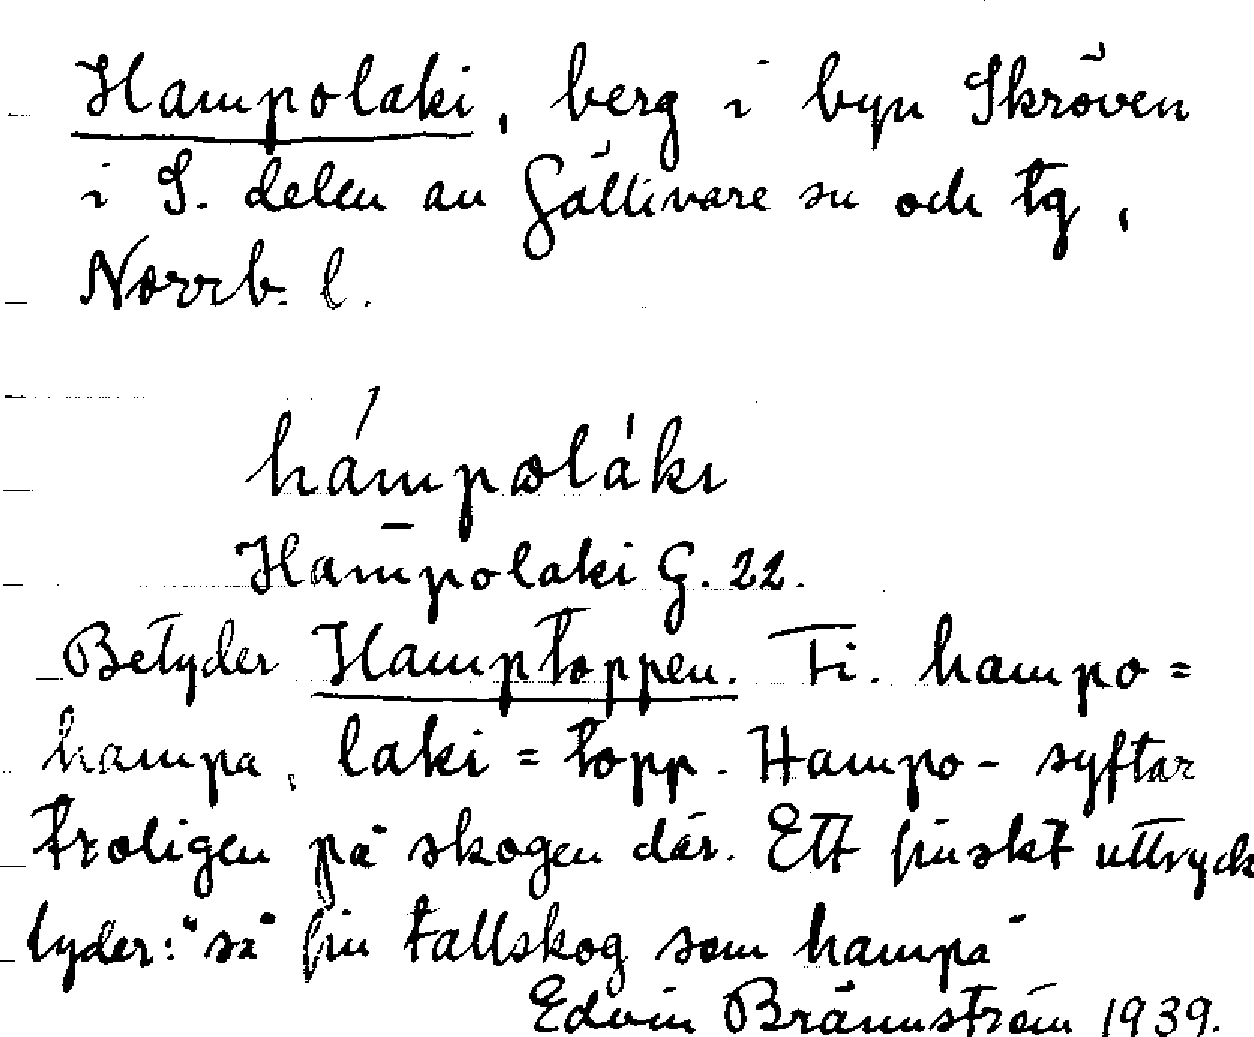 Hampolaki, berg i byn Skröven
i S. delen av Gällivare sn och tg,
Norrb. l.
hámpoláki
Hampolaki G. 22.
Betyder Hamptoppen. Fi. hampo =
hampa, laki = topp. Hampo- syftar
troligen på skogen där. Ett finskt uttryck
lyder: "så fin tallskog som hampa"
Edvin Brännström 1939.